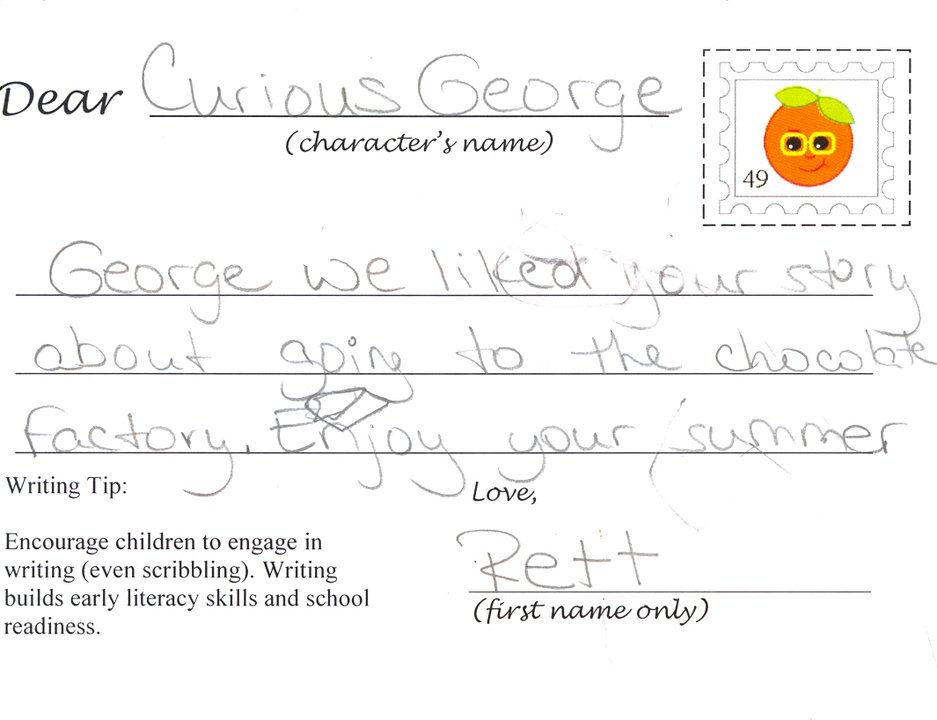 Dear Curious George
(character's name)
49
George we liked your story
about going to the chocolate
factory. Enjoy your summer
Writing Tip:
Love,
Encourage children to engage in
writing (even scribbling). Writing
builds early literacy skills and school
readiness.
Rett
(first name only)